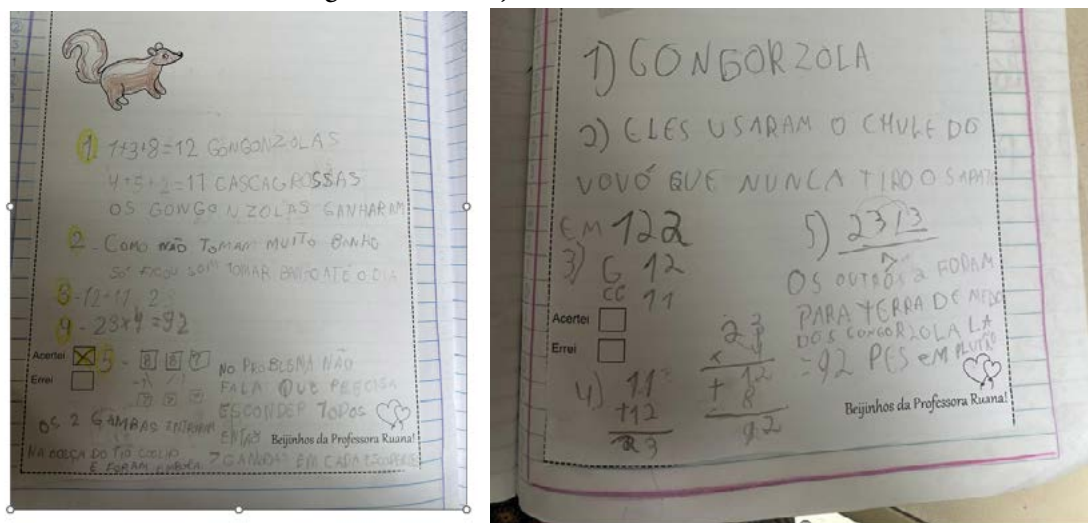 1. 1+3+8=12 GONGONZOLAS
4+5+2=11 CASCAGROSSAS
OS GONGONZOLAS GANHARAM
2 - COMO NÃO TOMAM MUITO BANHO
SÓ FICOU SEM TOMAR BANHO ATÉ O DIA
3 - 12+11=23
4 - 23x4=92
Acertei
Errei
5 - 8 8 7
NO PROBLEMA NÃO
FALA QUE PRECISA
ESCONDER TODOS
OS 2 GAMBAS ENTRARAM
NA BOLSA DO TIO COELIO
E FORAM EMBORA
7 GAMBAS EM CADA
Beijinhos da Professora Ruana!
1) GONGORZOLA
2) ELES USARAM O CHULE DO
VOVÓ QUE NUNCA TIRO O SAPATO
EM 122
3) G 12
CC 11
Acertei
Errei
4) 11
+12
23
23
x 4
+ 12
8
92
5) 2313
OS OUTROS 2 FORAM
PARA TERRA DE MEDO
DOS GONGORZOLA LÁ
=92 PES EM PLUTÃO
Beijinhos da Professora Ruana!